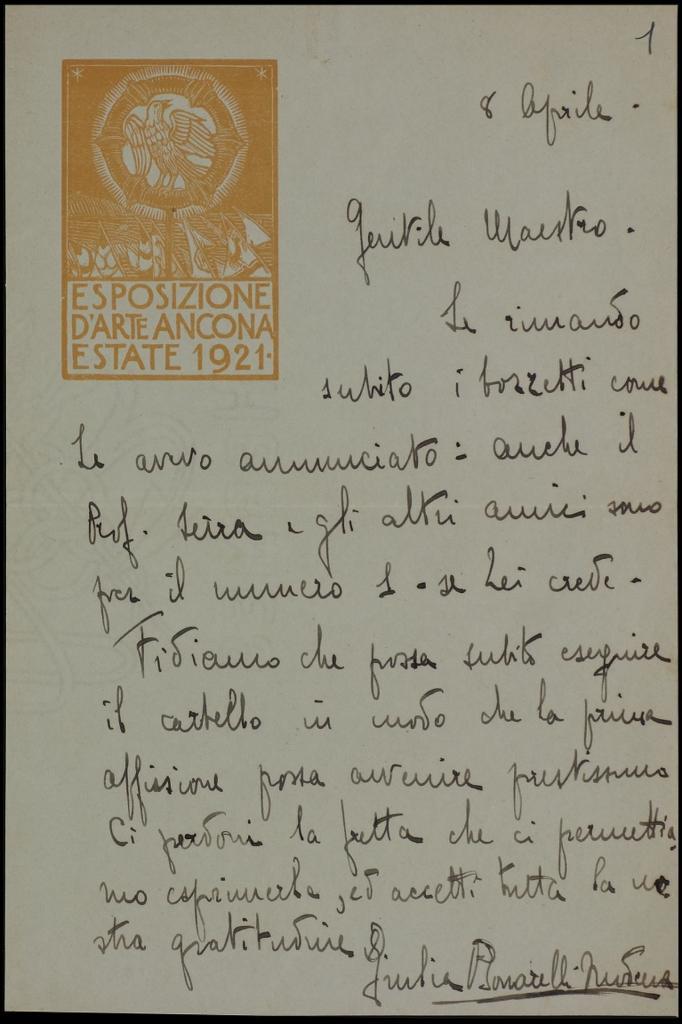 1
8 Aprile -
ESPOSIZIONE
D'ARTE ANCONA
ESTATE 1921.
Gentile Maestro.
Le rimando
subito i bozzetti come
Le avevo annunciato: anche il
Prof. Serra e gli altri amici sono
per il numero 1 - se Lei crede -
Fidiamo che possa subito eseguire
il cartello in modo che la prima
affissione possa avvenire prestissimo
Ci perdoni la fretta che ci permettia
mo esprimerle, ed accetti tutta la no
stra gratitudine
Giulia Bonarelli Modena